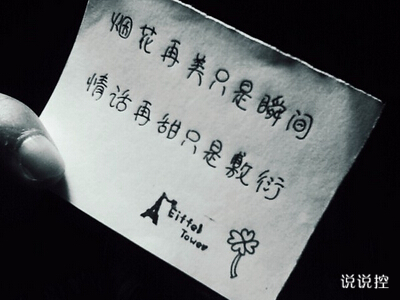 烟花再美只是瞬间
情话再甜只是敷衍
Eiffel
Tower
说说控